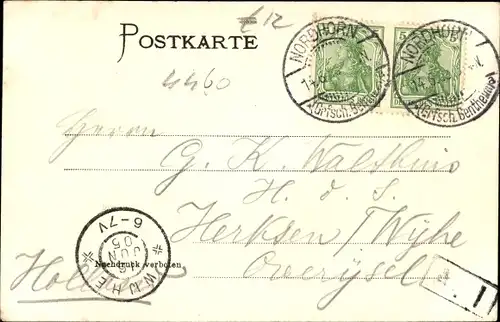 £12
POSTKARTE
4460
NORDHORN
NORDHORN
(Grfsch. Bentheim)
5
Herrn
G. K. Walthuis
H. d. S.
Herksen / Wyhe
Overijsel
Holland
Nachdruck verboten.
WIJHE
6 JUN 05
6-7V